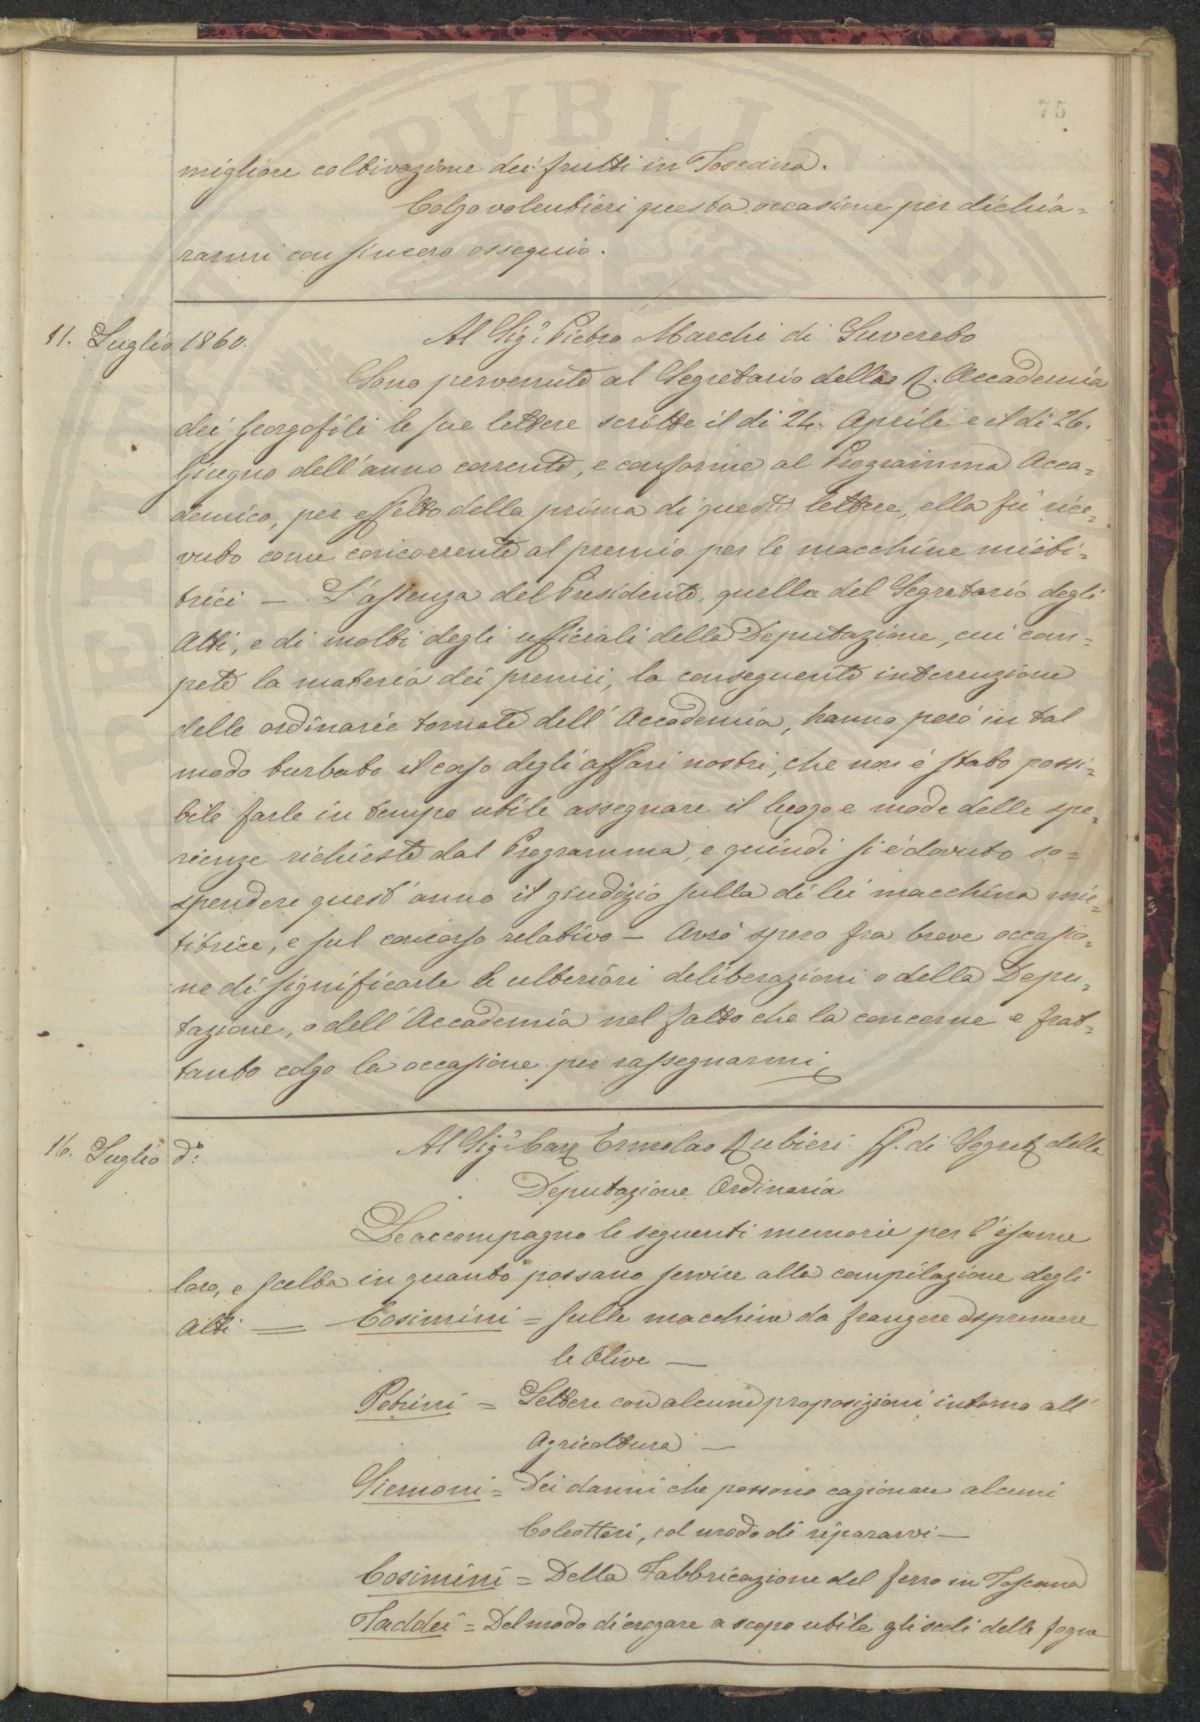 75
migliore coltivazione dei frutti in Toscana.
Colgo volentieri questa occasione per dichia=
rarmi con sincero ossequio.
11. Luglio 1860.
Al Sigr. Pietro Marchi di Suvereto
Sono pervenute al Segretario della R. Accademia
dei Georgofili le sue lettere scritte il dì 24. Aprile e il dì 26.
Giugno dell'anno corrente, e conforme al Programma Acca=
demico, per effetto della prima di queste lettere, ella fù rice=
vuto come concorrente al premio per le macchine mieti=
trici — L'assenza del Presidente, quella del Segretario degli
Atti, e di molti degli ufficiali della Deputazione, cui com=
pete la materia dei premii, la conseguente interruzione
delle ordinarie tornate dell'Accademia, hanno però in tal
modo turbato il corso degli affari nostri, che non è stato possi=
bile farle in tempo utile assegnare il luogo e modo delle spe=
rienze richieste dal Programma, e quindi si è dovuto so=
spendere quest'anno il giudizio sulla di lei macchina mie=
titrice, e sul concorso relativo — Avrò spero fra breve occasio=
ne di significarle le ulteriori deliberazioni o della Depu=
tazione, o dell'Accademia nel fatto che la concerne e frat=
tanto colgo la occasione per rassegnarmi
16. Luglio do.
Al Sigr. Cav Ermolao Rubieri ff. di Segret della
Deputazione Ordinaria
Le accompagno le seguenti memorie per l'esame
loro, e scelta in quanto possano servire alla compilazione degli
Atti — Cosimini = Sulle macchine da frangere e spremere
le Olive —
Petrini = Lettere con alcune proposizioni intorno all'
Agricoltura —
Siemoni = Dei danni che possono cagionare alcuni
Coleotteri, e del modo di ripararvi —
Cosimini = Della Fabbricazione del ferro in Toscana
Taddei = Del modo di erogare a scopo utile gli scoli delle fogne